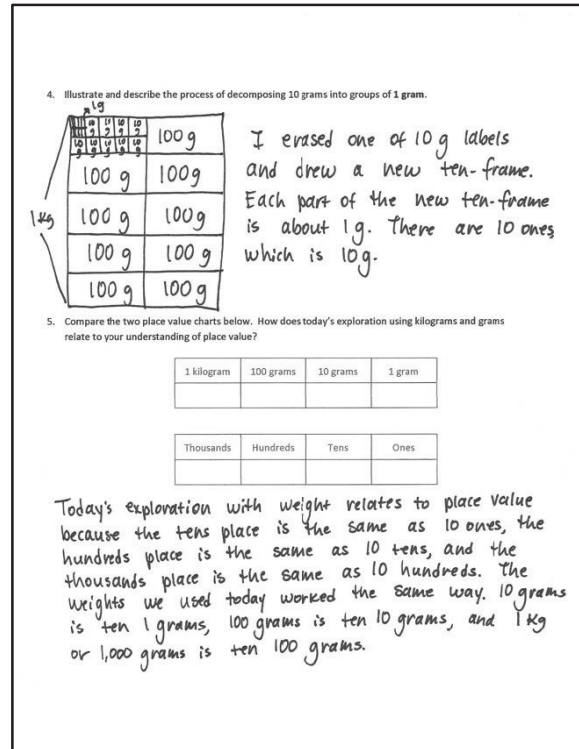 4. Illustrate and describe the process of decomposing 10 grams into groups of 1 gram.
1g
10 g 10 g 10 g 100 g
10 g 10 g 10 g 10 g 10 g
100 g 100 g
1 kg 100 g 100 g
100 g 100 g
100 g 100 g
I erased one of 10 g labels
and drew a new ten-frame.
Each part of the new ten-frame
is about 1g. There are 10 ones
which is 10g.
5. Compare the two place value charts below. How does today's exploration using kilograms and grams
relate to your understanding of place value?
1 kilogram 100 grams 10 grams 1 gram
Thousands Hundreds Tens Ones
Today's exploration with weight relates to place value
because the tens place is the same as 10 ones, the
hundreds place is the same as 10 tens, and the
thousands place is the same as 10 hundreds. The
weights we used today worked the same way. 10 grams
is ten 1 grams, 100 grams is ten 10 grams, and 1 kg
or 1,000 grams is ten 100 grams.